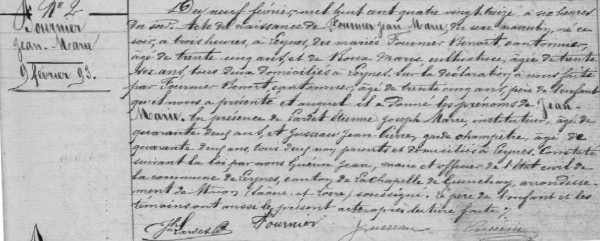 No 2
Fournier
Jean-Marie
9 février 93.
Du neuf février, mil huit cent quatre vingt treize, à six heures
du soir. Acte de naissance de Fournier Jean Marie du sexe masculin, né ce
soir, à trois heures, à Leynes, des mariés Fournier Benoît, cantonnier,
âgé de trente cinq ans, et de Marie, cultivatrice, âgée de trente
six ans, tous deux domiciliés à Leynes. Sur la déclaration à nous faite
par Fournier Benoît, cantonnier, âgé de trente cinq ans, père de l'enfant
qu'il nous a présenté et auquel il a donné les prénoms de Jean-
Marie. En présence de Lardet Etienne Joseph Marie, instituteur, âgé de
quarante deux ans, et Jusseau Jean Pierre, garde champêtre, âgé de
quarante deux ans, tous deux non parents et domiciliés à Leynes. Constaté
suivant la loi par nous Guérin Jean, maire et officier de l'état civil de
la commune de Leynes, canton de La Chapelle de Guinchay, arrondisse-
ment de Mâcon (Saône et Loire), soussigné. Le père de l'enfant et les
témoins ont aussi le présent acte après lecture faite.
Lardet Fournier Jusseau Guérin